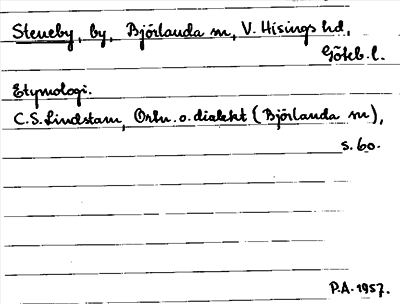 Steneby, by, Björlanda sn, V. Hisings hd,
Göteb. l.
Etymologi.
C.S. Lindstam, Ortn. o. dialekt (Björlanda sn),
s. 60.
P.A. 1957.